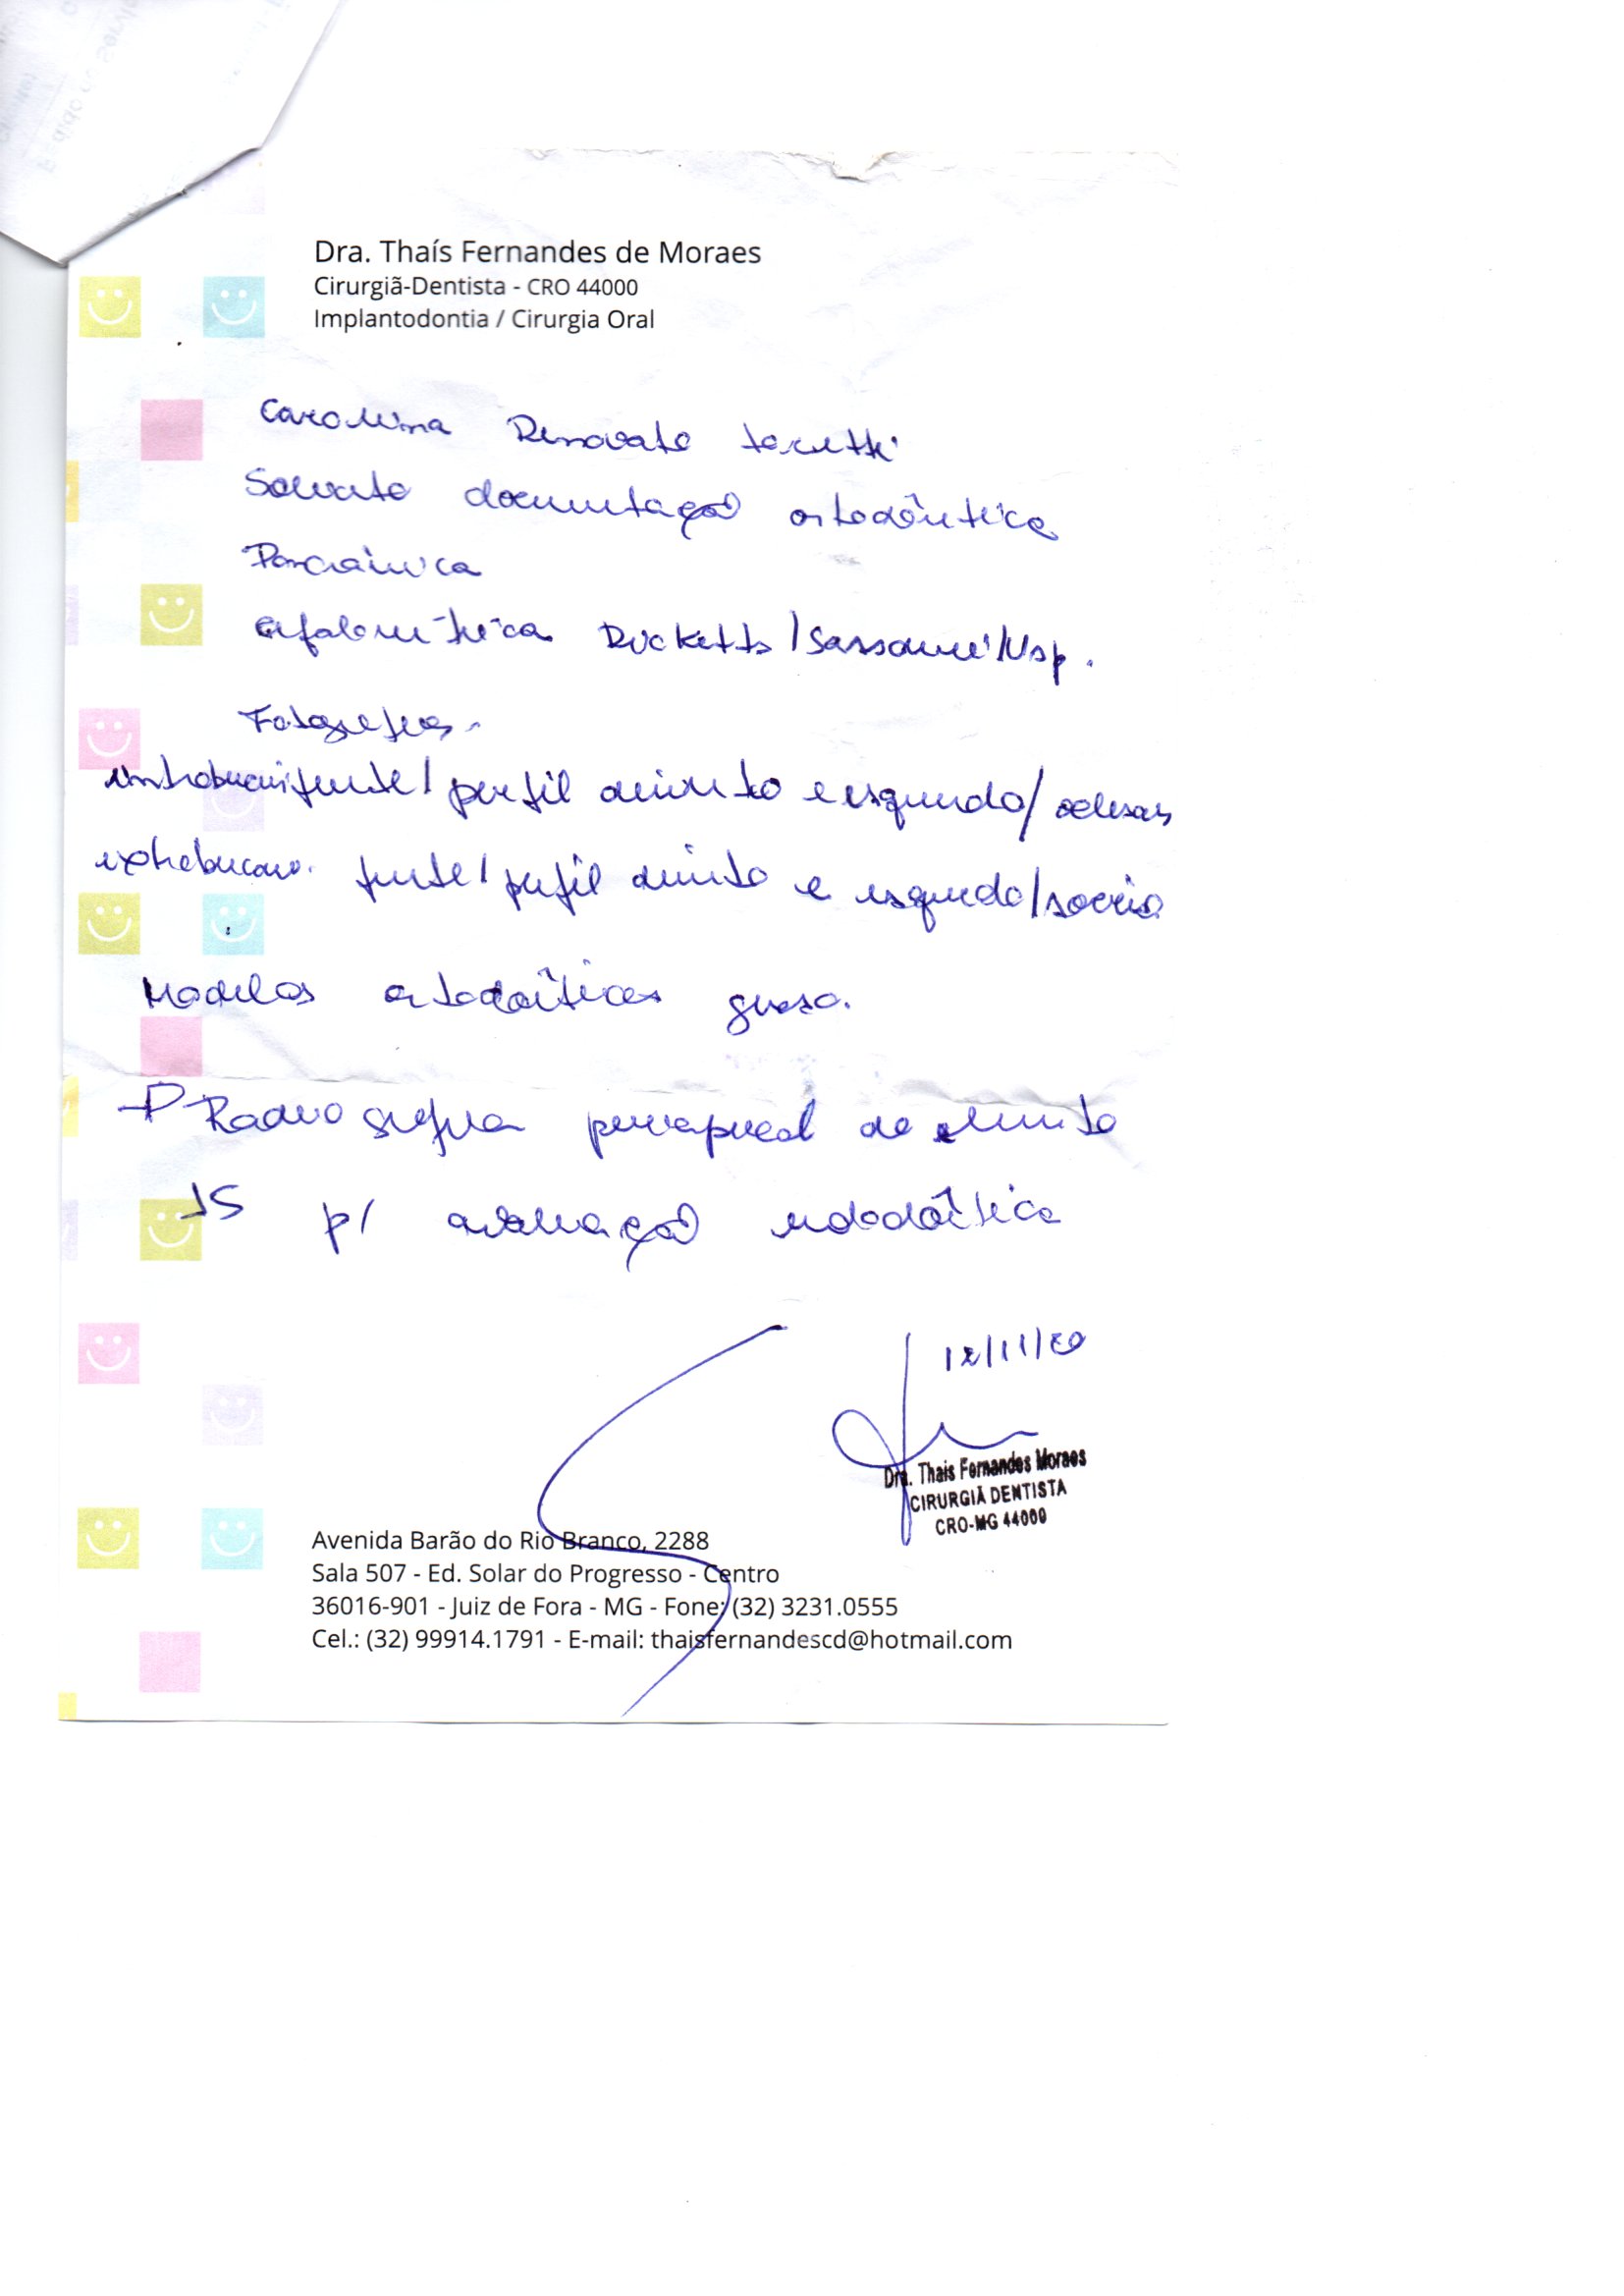 Dra. Thaís Fernandes de Moraes
Cirurgiã-Dentista - CRO 44000
Implantodontia / Cirurgia Oral
Carolina Renovato
Solicito documentação ortodôntica
Panorâmica
cefalométrica Ricketts/Sassouni/Usp.
Fotografias
intrabucais: frente/ perfil direito e esquerdo/ oclusais
extrabucais: frente/ perfil direito e esquerdo/ sorriso
Modelos ortodônticos gesso.
Radiografia periapical do elemento
15 p/ avaliação endodôntica
12/11/20
Dra. Thais Fernandes Moraes
CIRURGIÃ DENTISTA
CRO-MG 44000
Avenida Barão do Rio Branco, 2288
Sala 507 - Ed. Solar do Progresso - Centro
36016-901 - Juiz de Fora - MG - Fone: (32) 3231.0555
Cel.: (32) 99914.1791 - E-mail: thaisfernandescd@hotmail.com